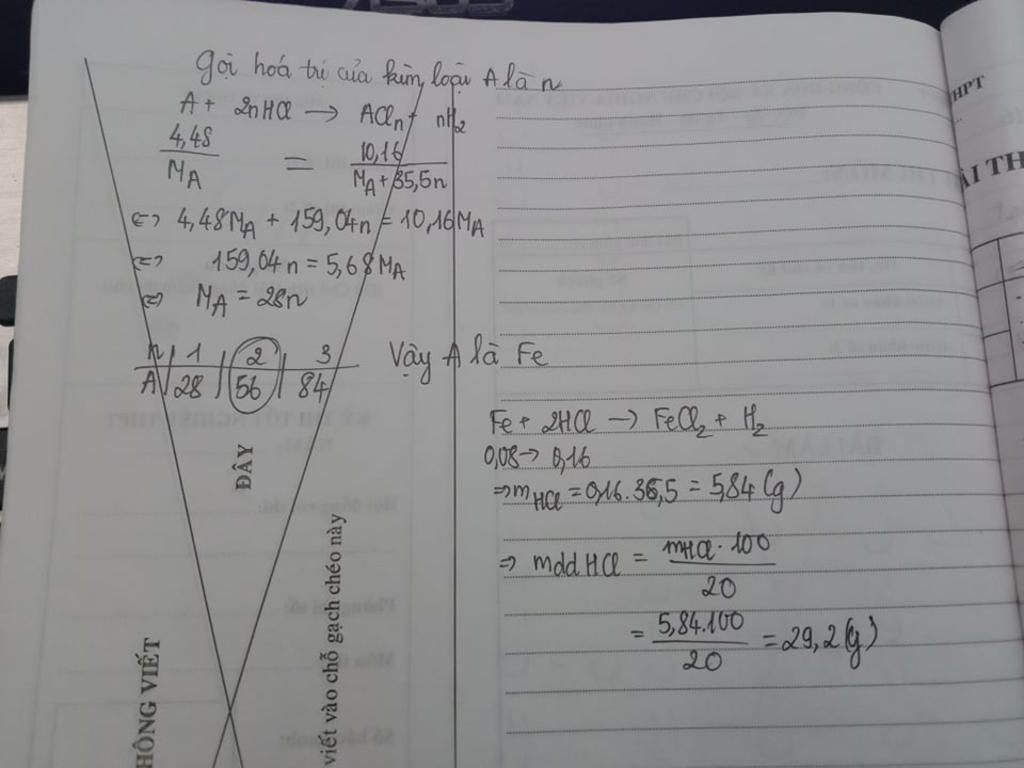 Gọi hoá trị của kim loại A là n
A + 2nHCl → ACln + nH2
4,48/MA = 10,16/MA + 35,5n
<=> 4,48MA + 159,04n = 10,16MA
<=> 159,04n = 5,68MA
<=> MA = 28n
n | 1 | 2 | 3
A | 28 | 56 | 84
Vậy A là Fe
Fe + 2HCl → FeCl2 + H2
0,08 → 0,16
=> mHCl = 0,16.36,5 = 5,84 (g)
=> mdd HCl = mHCl.100/20
= 5,84.100/20 = 29,2 (g)
ĐÂY
HÔNG VIẾT
viết vào chỗ gạch chéo này
HPT
ÀI TH